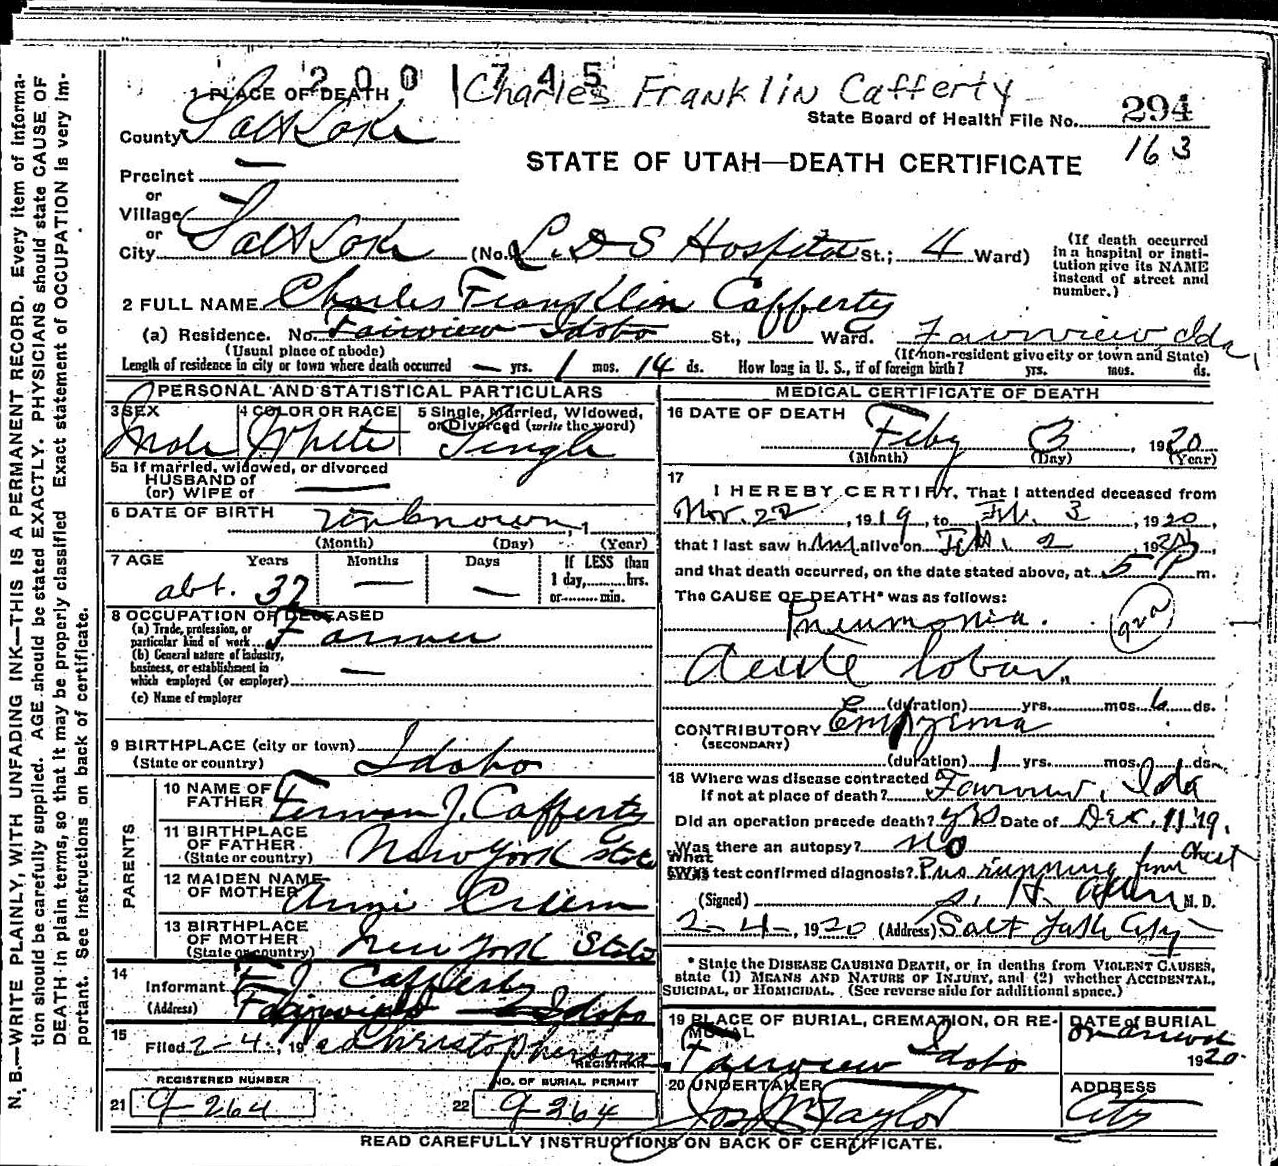 2001745
Charles Franklin Cafferty
1 PLACE OF DEATH
State Board of Health File No. 294
163
County Salt Lake
STATE OF UTAH—DEATH CERTIFICATE
Precinct —
or
Village —
or
City Salt Lake (No. L.D.S Hospital St.; 4 Ward)
(If death occurred in a hospital or institution give its NAME instead of street and number.)
2 FULL NAME Charles Franklin Cafferty
(a) Residence. No. Fairview Idaho St., Ward. Fairview, Ida,
(Usual place of abode) (If non-resident give city or town and State)
Length of residence in city or town where death occurred — yrs. 1 mos. 14 ds. How long in U. S., if of foreign birth? yrs. mos. ds.
PERSONAL AND STATISTICAL PARTICULARS
3 SEX Male
4 COLOR OR RACE White
5 Single, Married, Widowed, or Divorced (write the word) Single
5a If married, widowed, or divorced
HUSBAND of
(or) WIFE of —
6 DATE OF BIRTH Unknown, 1
(Month) (Day) (Year)
7 AGE Years Months Days If LESS than
1 day, hrs.
or min.
abt. 37 — —
8 OCCUPATION OF DECEASED
(a) Trade, profession, or
particular kind of work Farmer
(b) General nature of industry,
business, or establishment in
which employed (or employer) —
(c) Name of employer
9 BIRTHPLACE (city or town)
(State or country) Idaho
PARENTS
10 NAME OF
FATHER J. Cafferty
11 BIRTHPLACE
OF FATHER
(State or country) New York State
12 MAIDEN NAME
OF MOTHER Anni
13 BIRTHPLACE
OF MOTHER
(State or country) New York State
14
Informant F J Cafferty
(Address) Fairview Idaho
15
Filed 2-4-, 19 Christopherson
REGISTRAR
REGISTERED NUMBER
21 9-264
NO. OF BURIAL PERMIT
22 9-264
MEDICAL CERTIFICATE OF DEATH
16 DATE OF DEATH
Feby 3, 1920
(Month) (Day) (Year)
17
I HEREBY CERTIFY, That I attended deceased from
Nov. 22, 1919, to Feb. 3, 1920,
that I last saw him alive on Feb. 2, 1920,
and that death occurred, on the date stated above, at 5 P m.
The CAUSE OF DEATH* was as follows:
Pneumonia.
Acute lobar.
(duration) yrs. mos. 6 ds.
CONTRIBUTORY Empyema
(SECONDARY)
(duration) 1 yrs. mos. ds.
18 Where was disease contracted
If not at place of death? Fairview, Ida
Did an operation precede death? yes Date of Dec. 11 '19.
Was there an autopsy? no
What test confirmed diagnosis? Pus running from Chest
(Signed) S. H. Allen M. D.
2-4-, 1920 (Address) Salt Lake City
* State the DISEASE CAUSING DEATH, or in deaths from VIOLENT CAUSES,
state (1) MEANS AND NATURE OF INJURY, and (2) whether ACCIDENTAL,
SUICIDAL, or HOMICIDAL. (See reverse side for additional space.)
19 PLACE OF BURIAL, CREMATION, OR REMOVAL
Fairview Idaho
DATE of BURIAL
1920
20 UNDERTAKER
Jos Wm Taylor
ADDRESS
City
READ CAREFULLY INSTRUCTIONS ON BACK OF CERTIFICATE.
N. B.—WRITE PLAINLY, WITH UNFADING INK—THIS IS A PERMANENT RECORD. Every item of informa-
tion should be carefully supplied. AGE should be stated EXACTLY. PHYSICIANS should state CAUSE OF
DEATH in plain terms, so that it may be properly classified. Exact statement of OCCUPATION is very im-
portant. See instructions on back of certificate.